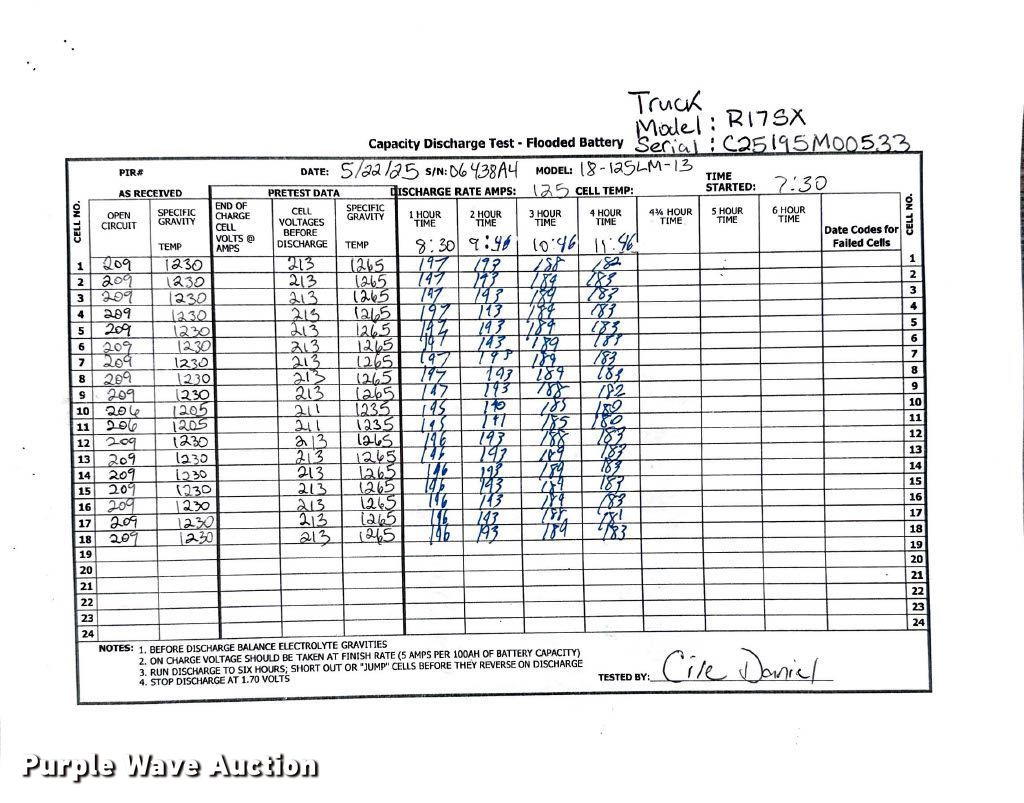 Truck
Model: R17SX
Capacity Discharge Test - Flooded Battery Serial: C25195M00533
PIR# DATE: 5/22/25 S/N: 06438A4 MODEL: 18-125LM-13 TIME STARTED: 7:30
AS RECEIVED PRETEST DATA DISCHARGE RATE AMPS: 125 CELL TEMP:
CELL NO. OPEN CIRCUIT SPECIFIC GRAVITY TEMP END OF CHARGE CELL VOLTS @ AMPS CELL VOLTAGES BEFORE DISCHARGE SPECIFIC GRAVITY TEMP 1 HOUR TIME 2 HOUR TIME 3 HOUR TIME 4 HOUR TIME 4¾ HOUR TIME 5 HOUR TIME 6 HOUR TIME Date Codes for Failed Cells CELL NO.
8:30 9:46 10:46 11:46
1 209 1230 213 1265 197 193 188 182 1
2 209 1230 213 1265 197 193 189 183 2
3 209 1230 213 1265 197 193 189 183 3
4 209 1230 213 1265 197 193 189 183 4
5 209 1230 213 1265 197 193 189 183 5
6 209 1230 213 1265 197 193 189 183 6
7 209 1230 213 1265 197 193 189 183 7
8 209 1230 213 1265 197 193 189 183 8
9 209 1230 213 1265 197 193 188 182 9
10 206 1205 211 1235 195 190 185 180 10
11 206 1205 211 1235 195 191 185 180 11
12 209 1230 213 1265 196 193 188 183 12
13 209 1230 213 1265 196 193 189 183 13
14 209 1230 213 1265 196 193 189 183 14
15 209 1230 213 1265 196 193 189 183 15
16 209 1230 213 1265 196 193 189 183 16
17 209 1230 213 1265 196 193 188 181 17
18 209 1230 213 1265 196 193 189 183 18
19 19
20 20
21 21
22 22
23 23
24 24
NOTES: 1. BEFORE DISCHARGE BALANCE ELECTROLYTE GRAVITIES
2. ON CHARGE VOLTAGE SHOULD BE TAKEN AT FINISH RATE (5 AMPS PER 100AH OF BATTERY CAPACITY)
3. RUN DISCHARGE TO SIX HOURS; SHORT OUT OR "JUMP" CELLS BEFORE THEY REVERSE ON DISCHARGE
4. STOP DISCHARGE AT 1.70 VOLTS
TESTED BY: Daniel
Purple Wave Auction